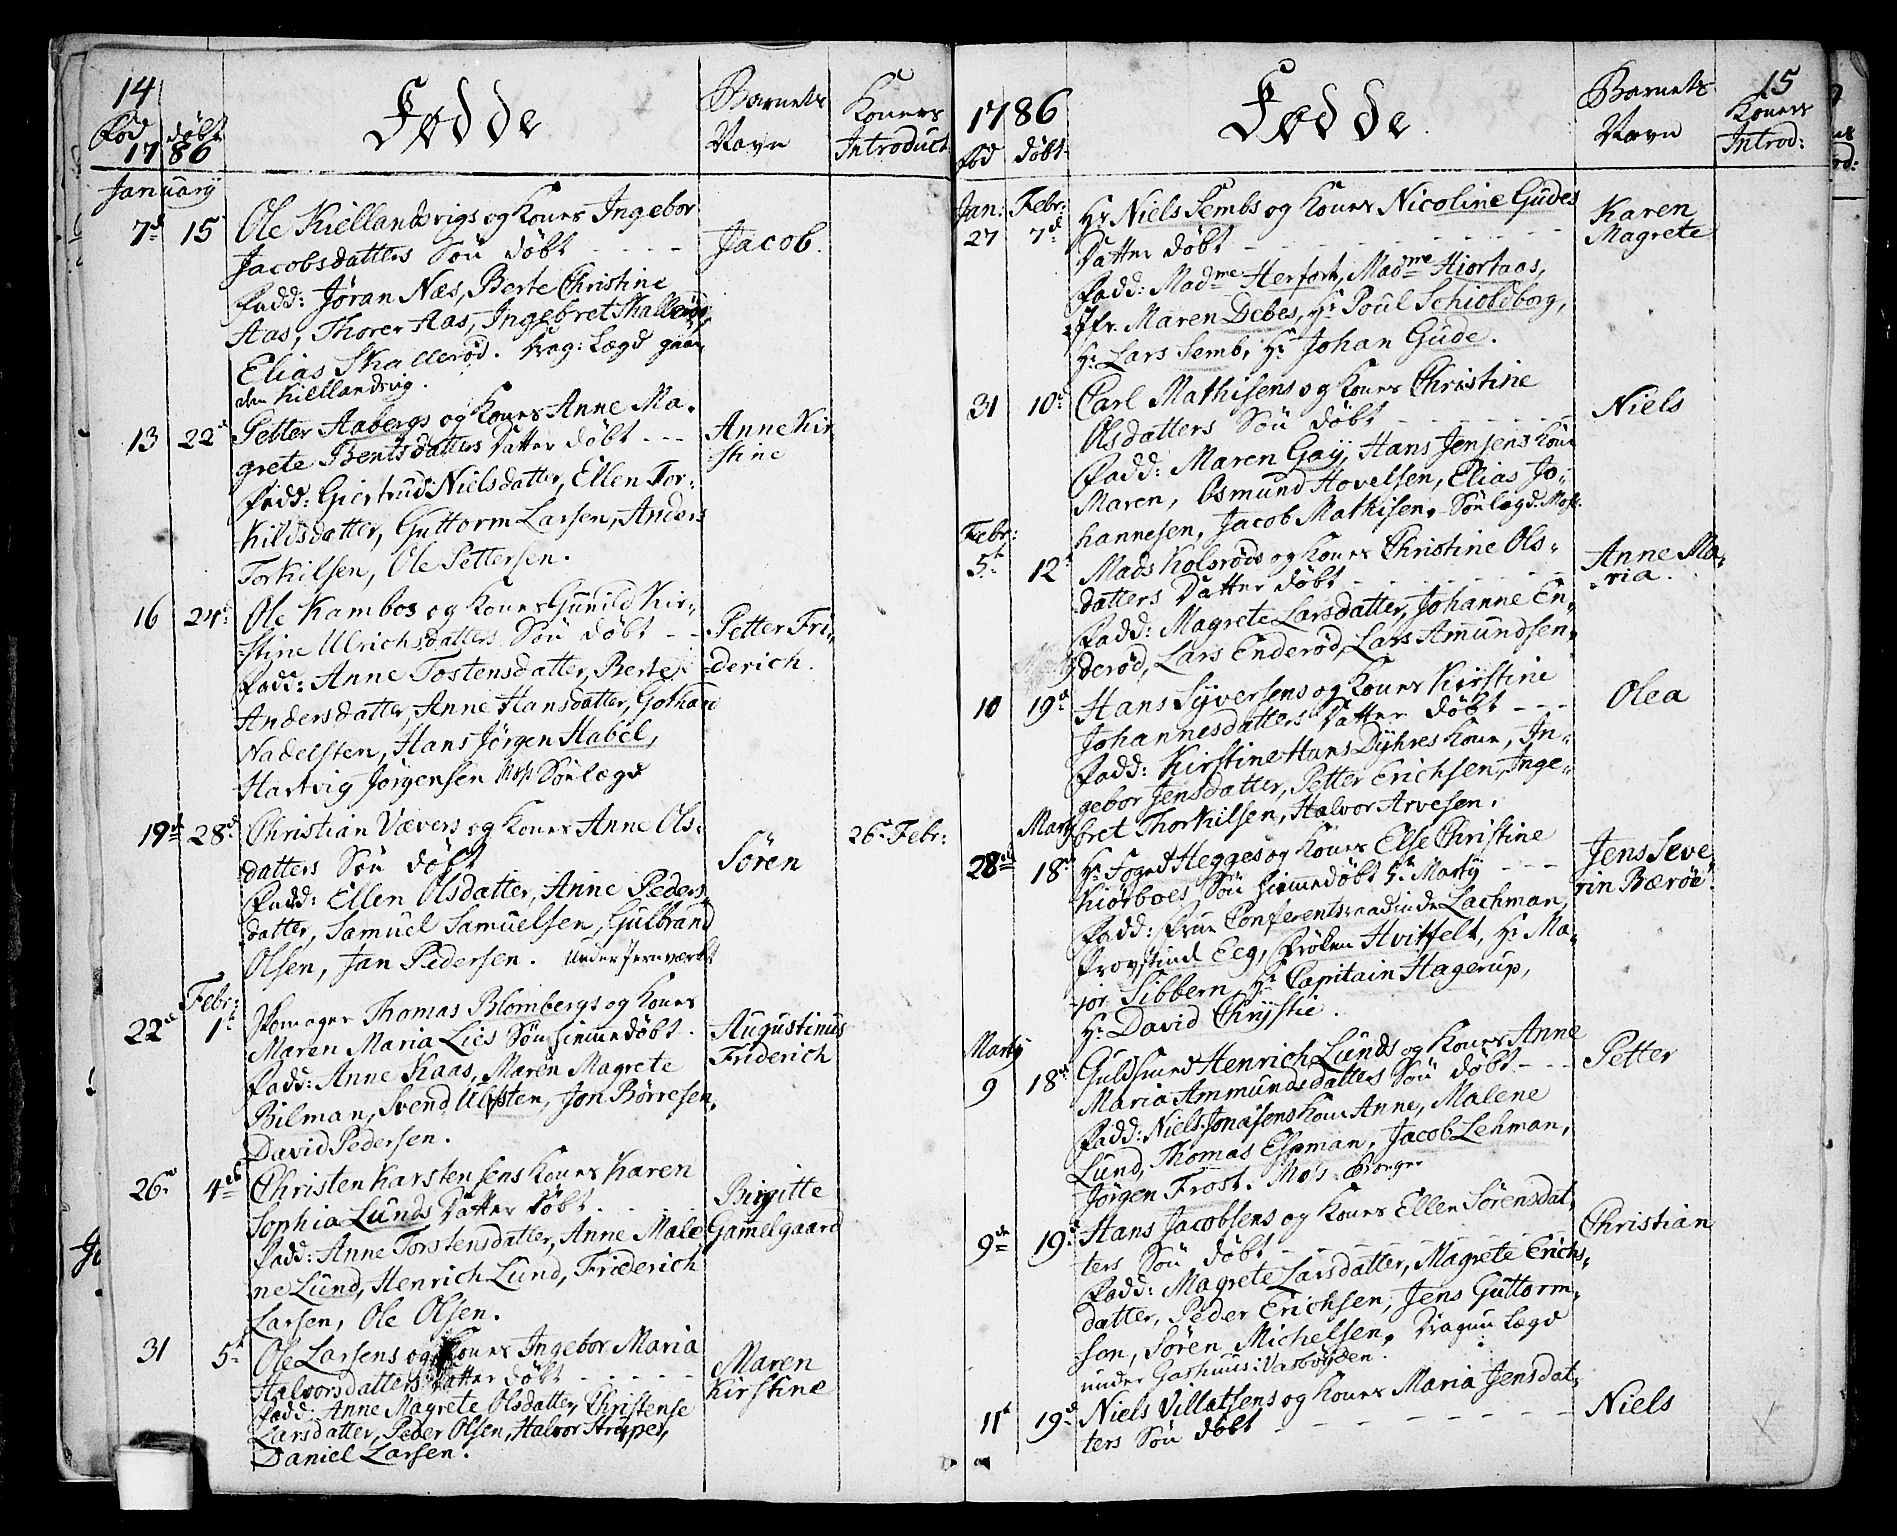 14
Fød døbt
1786
Fødde
Barnets
Navn
Koners
Introduct
January
7d 15 Ole Kiellandsvigs og Kones Ingebor
Jacobsdatters Søn døbt - - - - Jacob.
Fadd: Jøran Næs, Berte Christine
Aas, Thorer Aas, Ingebret Skallerød,
Elias Skallerød. Lægd
Kiellandsvig.
13 22d Petter Aabergs og Kones Anne Ma-
grete Bentsdatters Datter døbt - - - Anne Kir-
stine
Fadd: Giertrud Nielsdatter, Ellen Tor-
kildsdatter, Guttorm Larsen, Anders
Torkilsen, Ole Pettersen.
16 24d Ole Kambos og Kones Gunild Kir-
stine Ulrichsdatters Søn døbt - - Petter Fri-
derich.
Fadd: Anne Tostensdatter, Berte
Andersdatter, Anne Hansdatter, Gothard
Nadelsten, Hans Jørgen Habel,
Hartvig Jørgensen Mos Sønlægd
19d 28d Christian Vævers og Kones Anne Ols-
datters Søn døbt Søren 26d Febr:
Fadd: Ellen Olsdatter, Anne Peders-
datter, Samuel Samuelsen, Gulbrand
Olsen, Jan Pedersen. Under Jernværket
Febr:
22d 1t Thomas Blombergs og Kones
Maren Maria Lies Søn hiemmedøbt. Augustinus
Friderich
Fadd: Anne Kaas, Maren Magrete
Bilman, Svend Ulfsten, Jon Børresen,
David Pedersen.
26d 4de Christen Karstensens Kones Karen
Sophia Lunds Datter døbt. Birgitte
Gammelgaard
Fadd: Anne Torstensdatter, Anne Male-
ne Lund, Henrich Lund, Friderich
Larsen, Ole Olsen.
31 5t Ole Larsens og Kones Ingebor Maria
Halvorsdatters Datter døbt - - - - - Maren
Kirstine
Fadd: Anne Magrete Olsdatter, Christense
Larsdatter, Peder Olsen, Halvor Strøper,
Daniel Larsen.
1786
Fød døbt
Fødde
Barnets
Navn
15
Koners
Introd:
Jan: Febr:
27 7d Hr Niels Sembs og Kones Nicoline Gudes
Datter døbt - - - - - Karen
Magrete
Fadd: Madme Herfort, Madme Hiortaas,
Jfr. Maren Debes, Hr Poul Schioldborg,
Hr Lars Semb, Hr Johan Gude.
31 10d Carl Mathisens og Kones Christine
Olsdatters Søn døbt - - - - - Niels
Fadd: Maren Gay, Hans Jensens Kone
Maren, Osmund Hovelsen, Elias Jo-
hannesen, Jacob Mathisen. Sønlægd. Mos.
Febr:
5t 12t Mads Kolsrøds og Kones Christine Ols-
datters Datter døbt - - - - - Anne Ma-
ria.
Fadd: Magrete Larsdatter, Johanne En-
derød, Lars Enderød, Lars Amundsen.
10 19d Hans Syversens og Kones Kirstine
Johannesdatters Datter døbt - - - Olea
Fadd: Kirstine Hans Dyhres Kone, In-
gebor Jensdatter, Petter Erichsen, Inge-
bret Thorkilsen, Halvor Arvesen.
Marty
28de 18d Hr Foged Hegges og Kones Else Christine
Kiørboes Søn hiemmedøbt 5t Marty - - - Jens Seve-
rin Bærøe.
Fadd: Frue Conferentsraadinde Lachman,
Provstinde Eeg, Frøken Hvitfelt, Hr Ma-
jor Sibbern, Hr Capitain Hagerup,
Hr David Chrystie.
Marty
9 18d Guldsmed Henrich Lunds og Kones Anne
Maria Ammundsdatters Søn døbt - - - Petter
Fadd: Niels Jonasens Kone Anne, Malene
Lund, Thomas Espman, Jacob Lehman,
Jørgen Frost. Mos. Borger
9de 19d Hans Jacobsens og Kones Ellen Sørensdat-
ters Søn døbt - - - - - Christian
Fadd: Magrete Larsdatter, Magrete Erichs-
datter, Peder Erichsen, Jens Guttorm-
son, Søren Michelsen. Dragun Lægd
under Gashuus i Varbøyden.
11t 19d Niels Villatsens og Kones Maria Jensdat-
ters Søn døbt - - - - - Niels